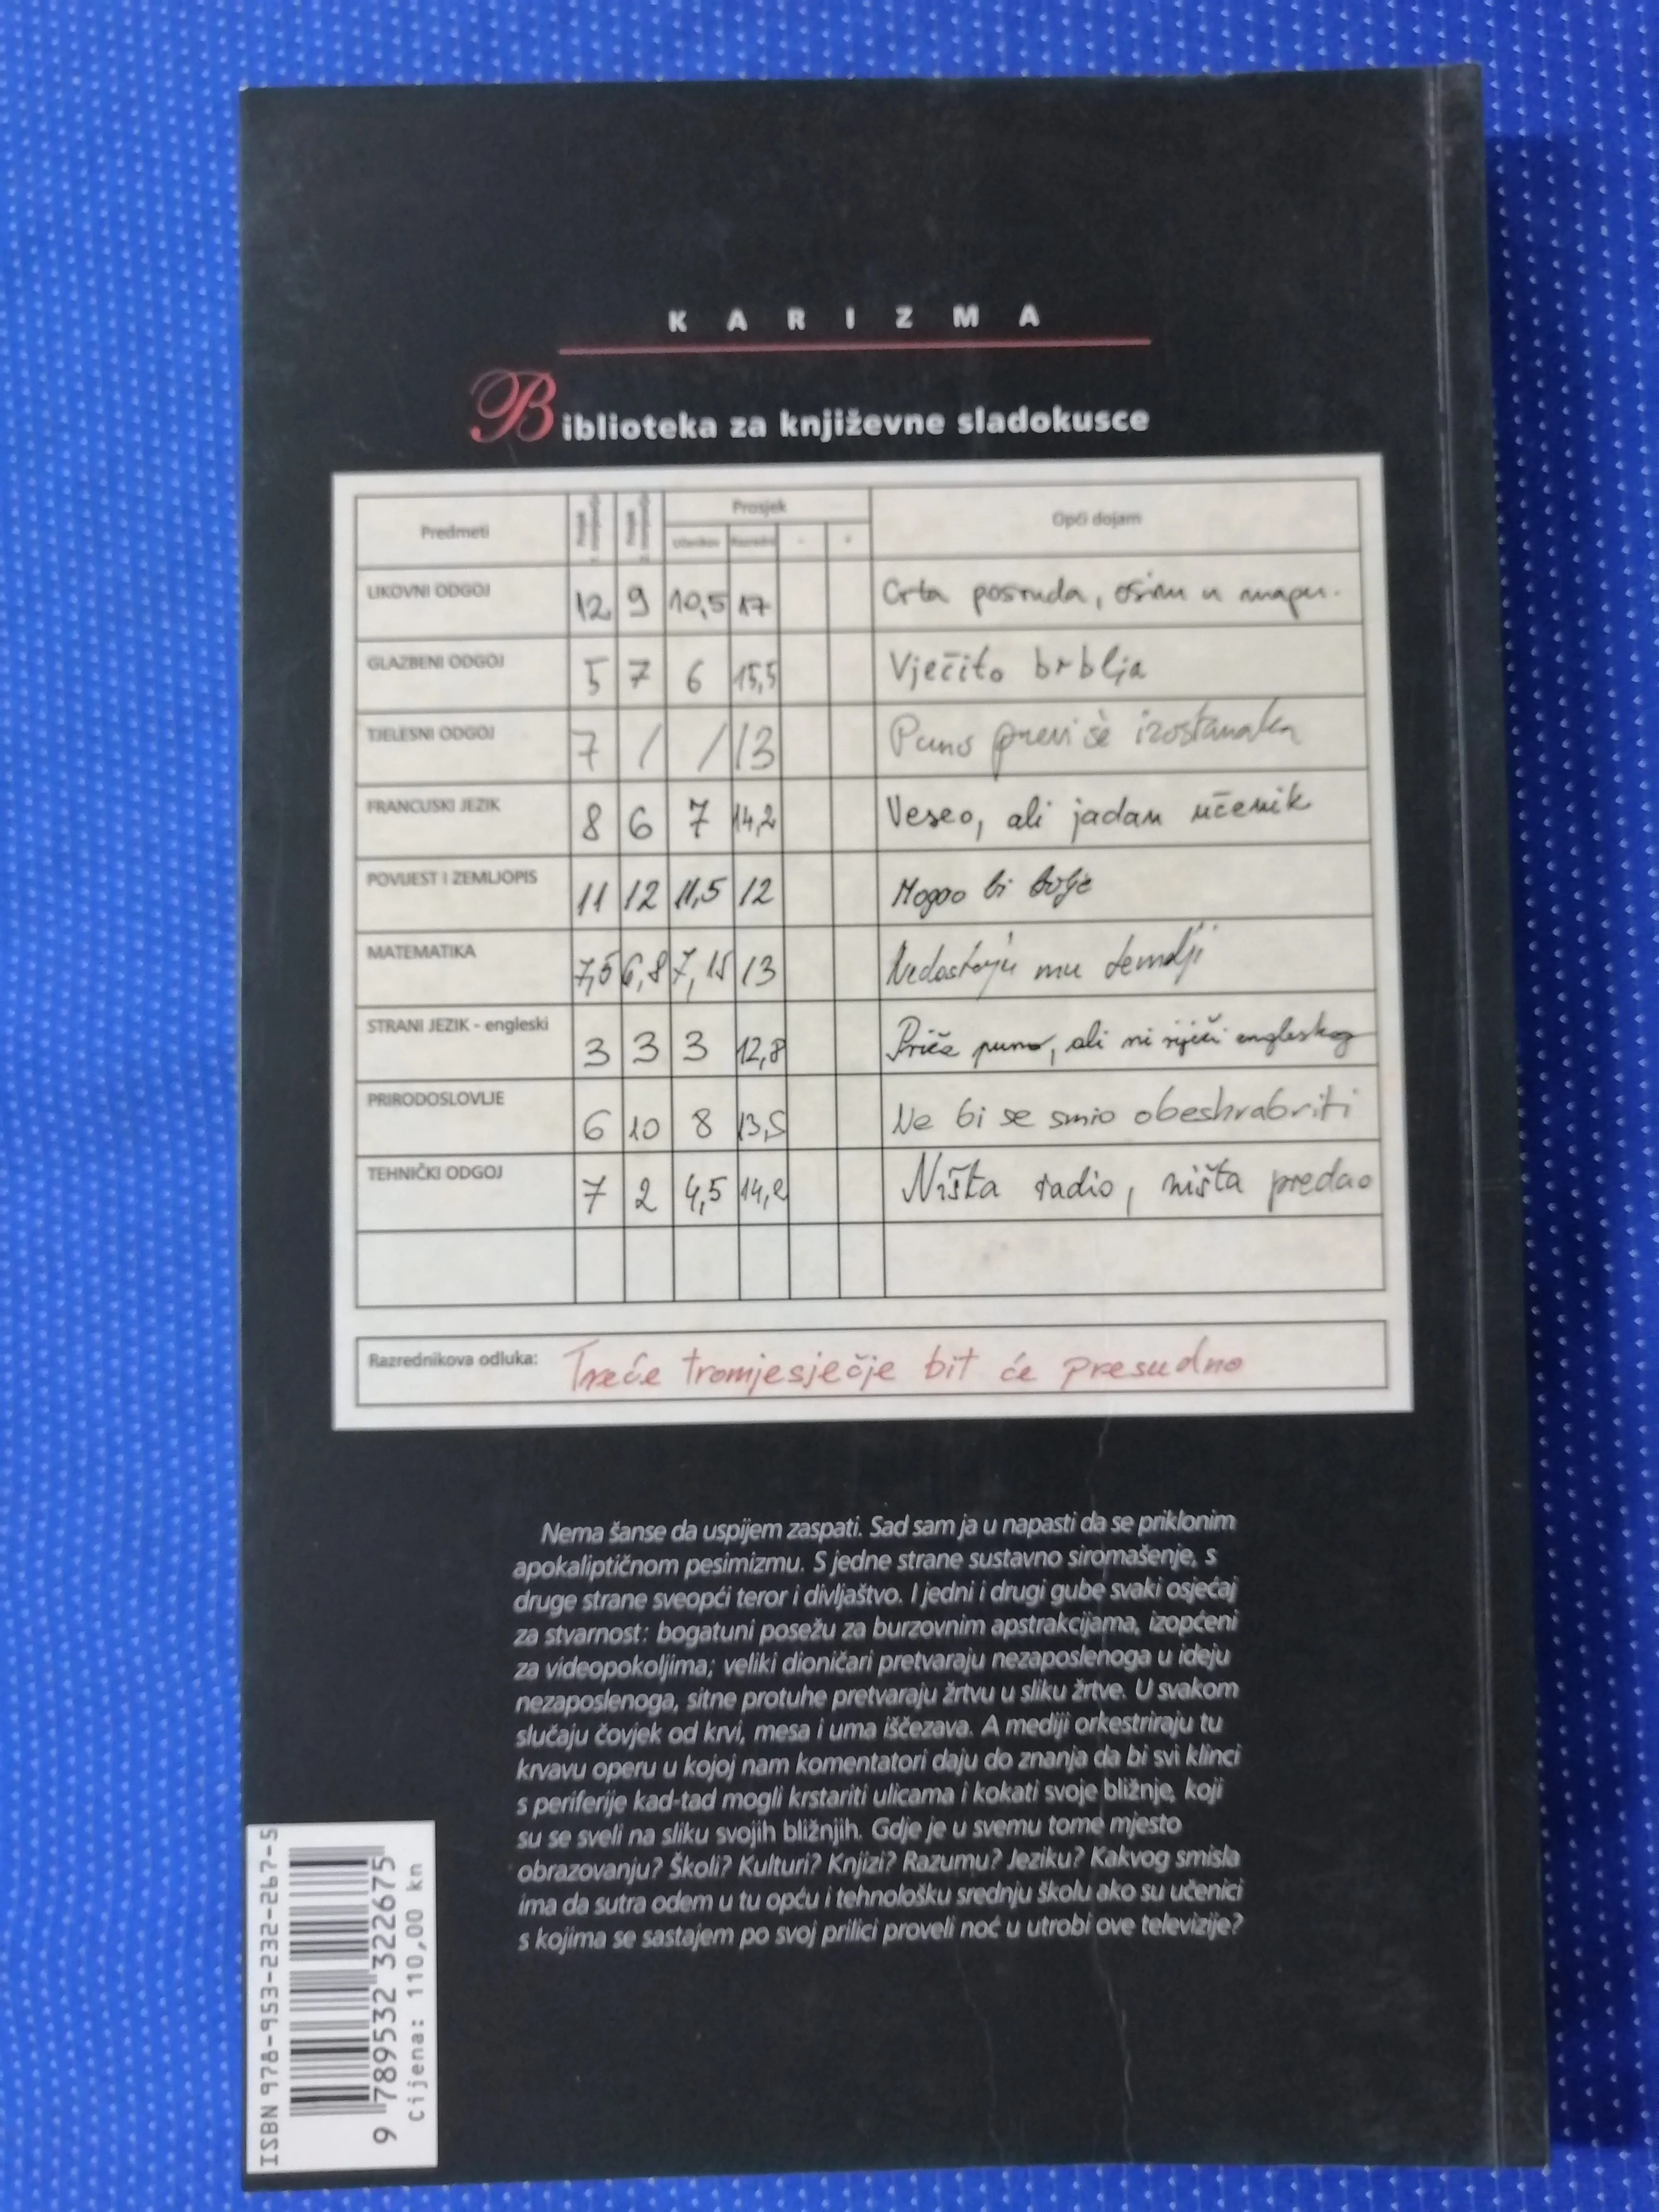 KARIZMA
Biblioteka za književne sladokusce
Predmeti Prosjek Prosjek Prosjek Opći dojam
Učenikov Razredni - +
LIKOVNI ODGOJ 12 9 10,5 17 Crta posvuda, osim u mapu.
GLAZBENI ODGOJ 5 7 6 15,5 Vječito brblja
TJELESNI ODGOJ 7 / / 13 Puno previše izostanaka
FRANCUSKI JEZIK 8 6 7 14,2 Veseo, ali jadan učenik
POVIJEST I ZEMLJOPIS 11 12 11,5 12 Mogao bi bolje
MATEMATIKA 7,5 6,8 7,15 13 Nedostaju mu temelji
STRANI JEZIK - engleski 3 3 3 12,8 Priča puno, ali ni riječi engleskog
PRIRODOSLOVLJE 6 10 8 13,5 Ne bi se smio obeshrabriti
TEHNIČKI ODGOJ 7 2 4,5 14,2 Ništa radio, ništa predao
Razrednikova odluka: Treće tromjesječje bit će presudno
Nema šanse da uspijem zaspati. Sad sam ja u napasti da se priklonim
apokaliptičnom pesimizmu. S jedne strane sustavno siromašenje, s
druge strane sveopći teror i divljaštvo. I jedni i drugi gube svaki osjećaj
za stvarnost: bogatuni posežu za burzovnim apstrakcijama, izopćeni
za videopokoljima; veliki dioničari pretvaraju nezaposlenoga u ideju
nezaposlenoga, sitne protuhe pretvaraju žrtvu u sliku žrtve. U svakom
slučaju čovjek od krvi, mesa i uma iščezava. A mediji orkestriraju tu
krvavu operu u kojoj nam komentatori daju do znanja da bi svi klinci
s periferije kad-tad mogli krstariti ulicama i kokati svoje bližnje, koji
su se sveli na sliku svojih bližnjih. Gdje je u svemu tome mjesto
obrazovanju? Školi? Kulturi? Knjizi? Razumu? Jeziku? Kakvog smisla
ima da sutra odem u tu opću i tehnološku srednju školu ako su učenici
s kojima se sastajem po svoj prilici proveli noć u utrobi ove televizije?
ISBN 978-953-232-267-5
9 789532 322675
Cijena: 110,00 kn